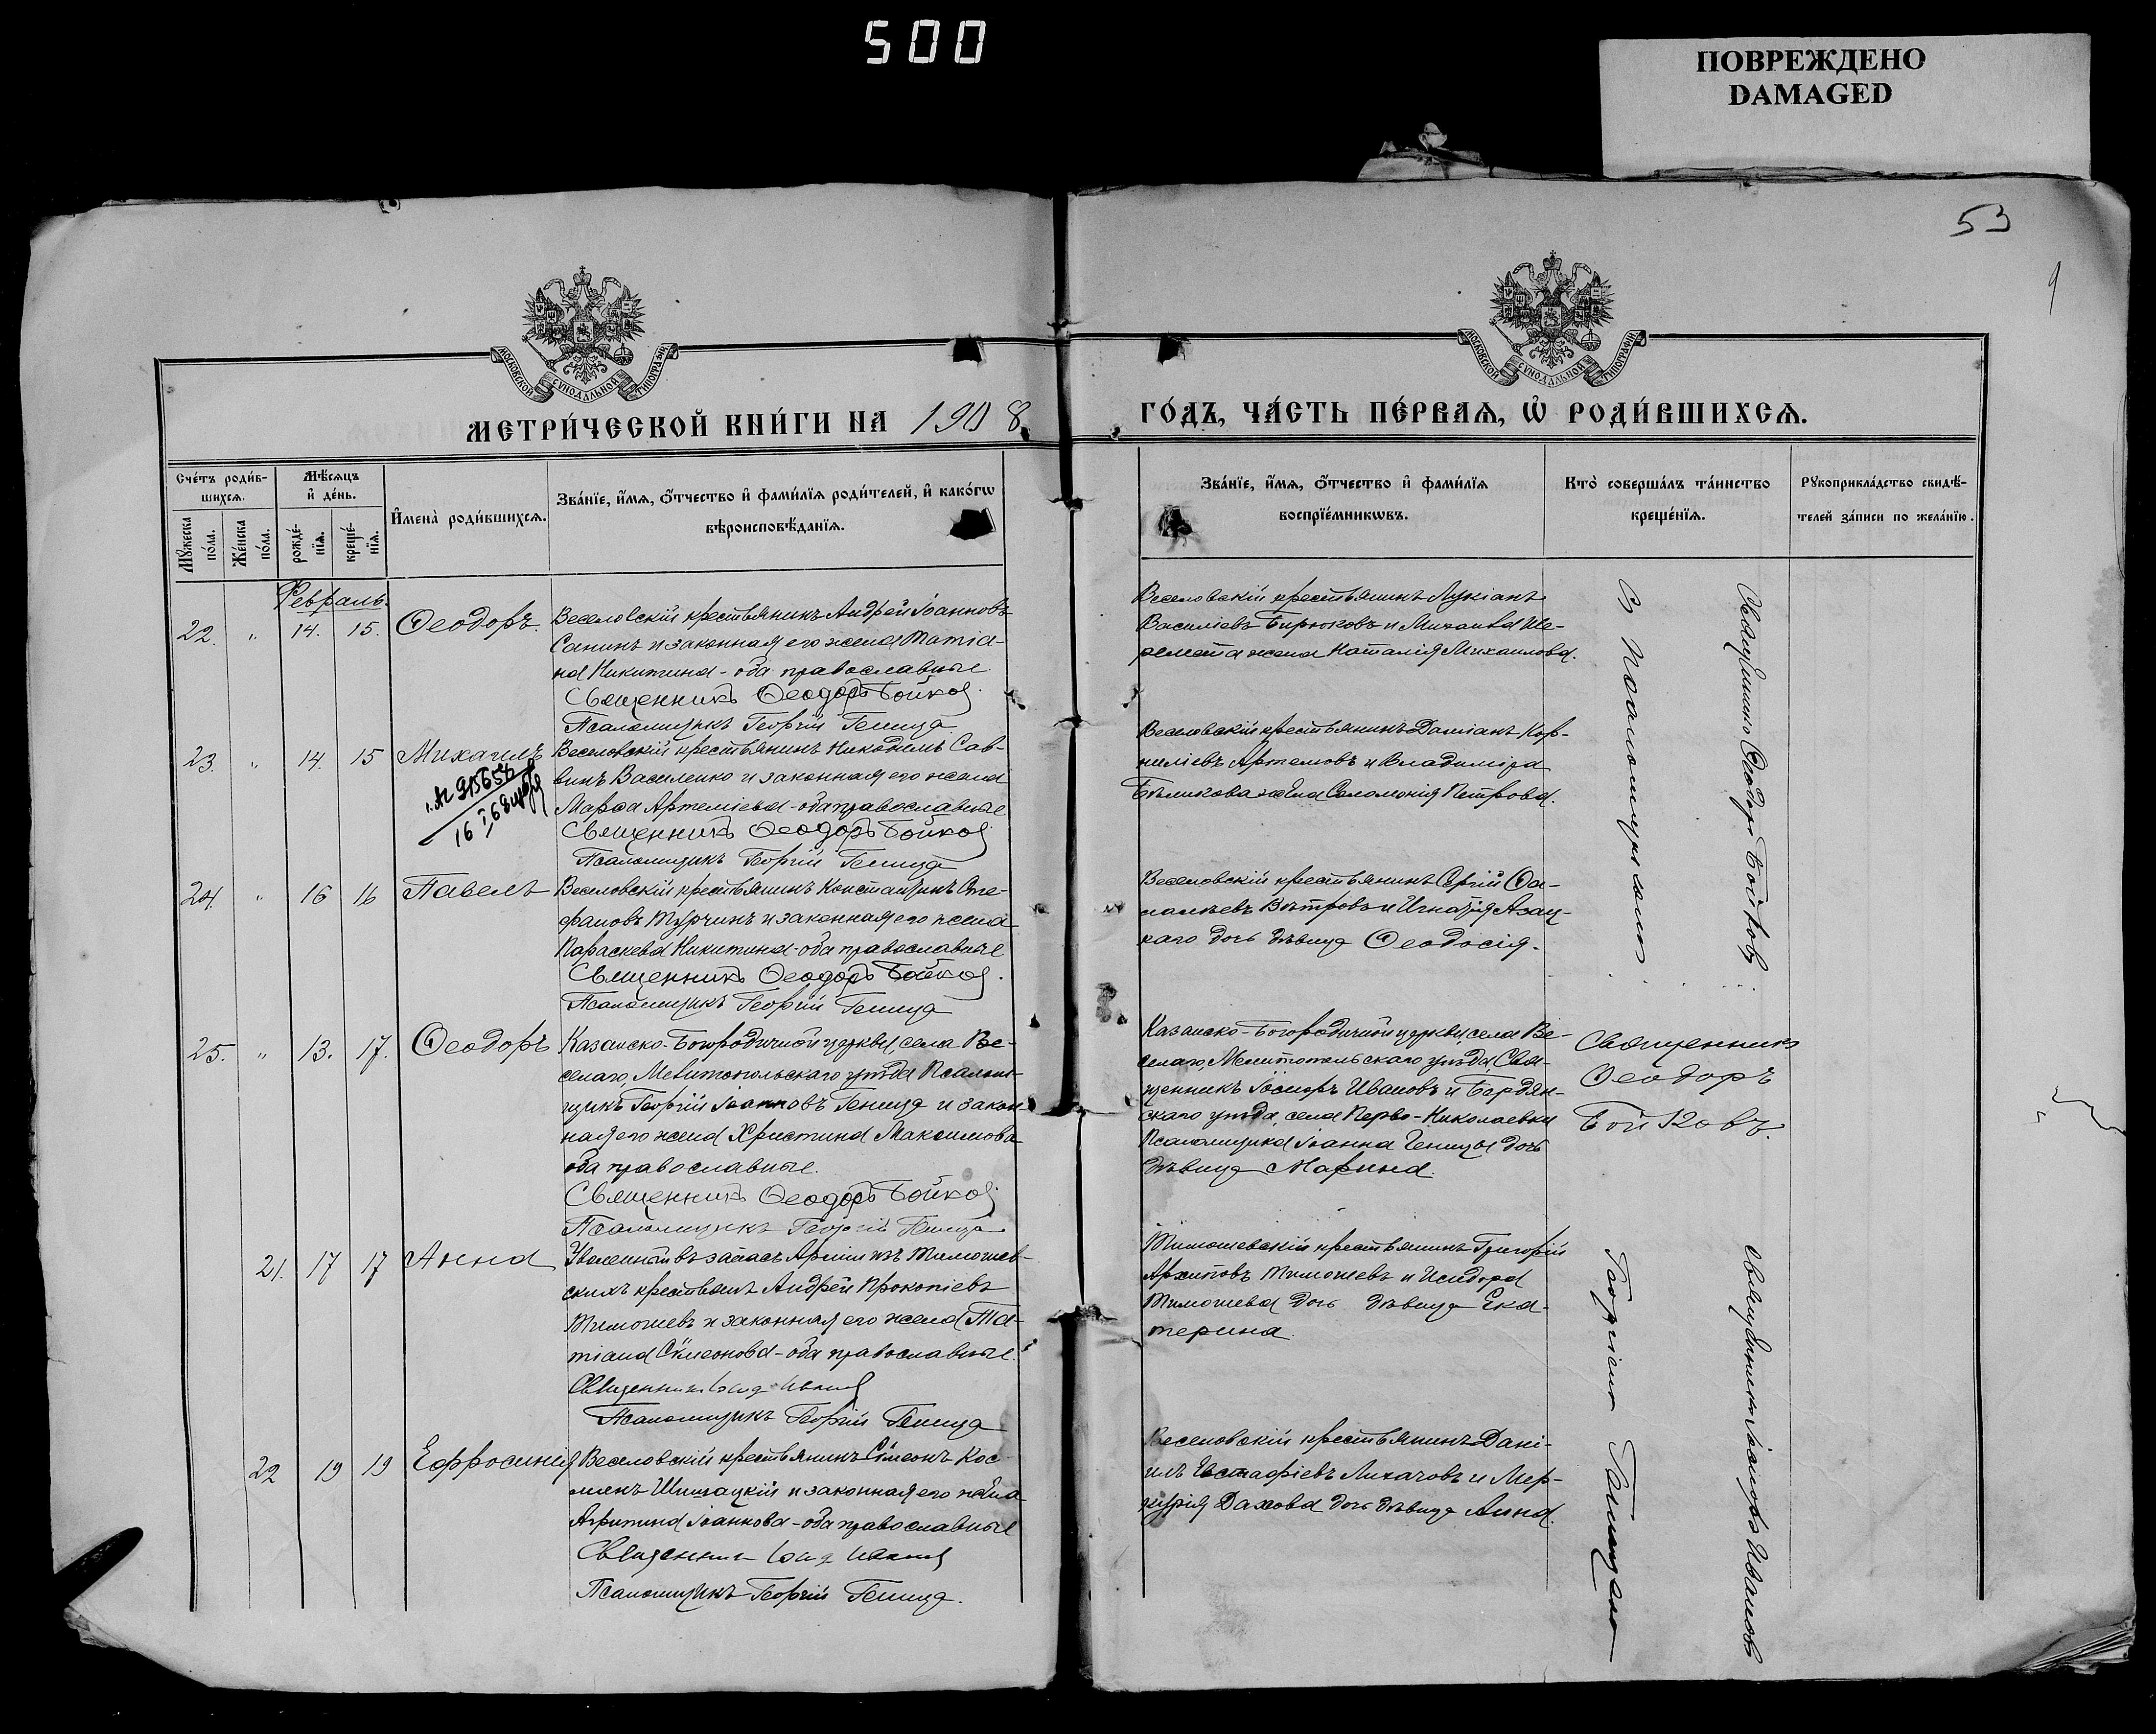 500
ПОВРЕЖДЕНО
DAMAGED
53
9
МОСКОВСКОЙ СУНОДАЛЬНОЙ ТИПОГРАФІИ
МОСКОВСКОЙ СУНОДАЛЬНОЙ ТИПОГРАФІИ
МЕТРИ́ЧЕСКОЙ КНИ́ГИ НА 1908
ГО́ДЪ, ЧА́СТЬ ПЕ́РВАѦ, Ѡ҆ РОДИ́ВШИХСѦ.
Сче́тъ роди́в-
шихсѧ.
Мꙋжеска по́ла.
Же́нска по́ла.
Мѣ́сѧцъ
и҆ де́нь.
рожде́-
нїѧ.
креще́-
нїѧ.
И҆мена̀ роди́вшихсѧ.
Зва́нїе, и҆́мѧ, ѻ҆́тчество и҆ фами́лїѧ роди́телей, и҆ како́гѡ
вѣроисповѣ́данїѧ.
Зва́нїе, и҆́мѧ, ѻ҆́тчество и҆ фами́лїѧ
воспрїе́мникѡвъ.
Кто̀ соверша́лъ та́инство
креще́нїѧ.
Рꙋкоприкла́дство свидѣ́-
телей за́писи по жела́нїю.
Февраль.
22. " 14. 15. Ѳеодоръ.
Веселовскій крестьянинъ Андрей Іоанновъ
Санинъ и законная его жена Татіа-
на Никитина - оба православные
Священникъ Ѳеодоръ Бойковъ.
Псаломщикъ Георгій Геница
Веселовскій крестьянинъ Лукіанъ
Василіевъ Бирюковъ и Михаила Ше-
ремета жена Наталія Михаилова.
23. " 14. 15 Михаилъ
16
Веселовскій крестьянинъ Никодимъ Сав-
винъ Василенко и законная его жена
Марѳа Артеміева - оба православные
Священникъ Ѳеодоръ Бойковъ
Псаломщикъ Георгій Геница
Веселовскій крестьянинъ Даміанъ Кор-
ниліевъ Артемовъ и Владиміра
Бѣликова жена Соломонія Петрова.
24. " 16 16 Павелъ
Веселовскій крестьянинъ Константинъ Сте-
фановъ Турчинъ и законная его жена
Параскева Никитина - оба православные
Священникъ Ѳеодоръ Бойковъ.
Псаломщикъ Георгій Геница
Веселовскій крестьянинъ Сергій Ѳа-
лалѣевъ Вѣтровъ и Игнатія Азац-
каго дочь дѣвица Ѳеодосія.
Священникъ Ѳеодоръ Бойковъ
съ Псаломщикомъ.
25. " 13. 17. Ѳеодоръ
Казанско-Богородичной церкви, села Ве-
селаго, Мелитопольскаго уѣзда Псалом-
щикъ Георгій Іоанновъ Геница и закон-
ная его жена Христина Максимова
оба православные.
Священникъ Ѳеодоръ Бойковъ
Псаломщикъ Георгій Геница
Казанско-Богородичной церкви, села Ве-
селаго, Мелитопольскаго уѣзда Свя-
щенникъ Іосифъ Ивановъ и Бердян-
скаго уѣзда, села Перво-Николаевки
Псаломщика Іоанна Геницы дочь
дѣвица Марина.
Священникъ
Ѳеодоръ
Бойковъ.
21. 17 17 Анна
Уволенный въ запасъ Арміи изъ Тимошев-
скихъ крестьянъ Андрей Прокопіевъ
Тимошевъ и законная его жена Та-
тіана Сѵмеонова - оба православные.
Священникъ Іосифъ Ивановъ
Псаломщикъ Георгій Геница
Тимошевскій крестьянинъ Григорій
Архиповъ Тимошевъ и Исидора
Тимошева дочь дѣвица Ека-
терина.
22 19 19 Ефросинія
Веселовскій крестьянинъ Сѵмеонъ Кос-
минъ Шишацкій и законная его жена
Агрипина Іоаннова - оба православные
Священникъ Іосифъ Ивановъ
Псаломщикъ Георгій Геница.
Веселовскій крестьянинъ Дані-
илъ Евстафіевъ Лихачовъ и Мер-
курія Дахова дочь дѣвица Анна.
Священникъ Іосифъ Ивановъ
Георгіемъ Геницею